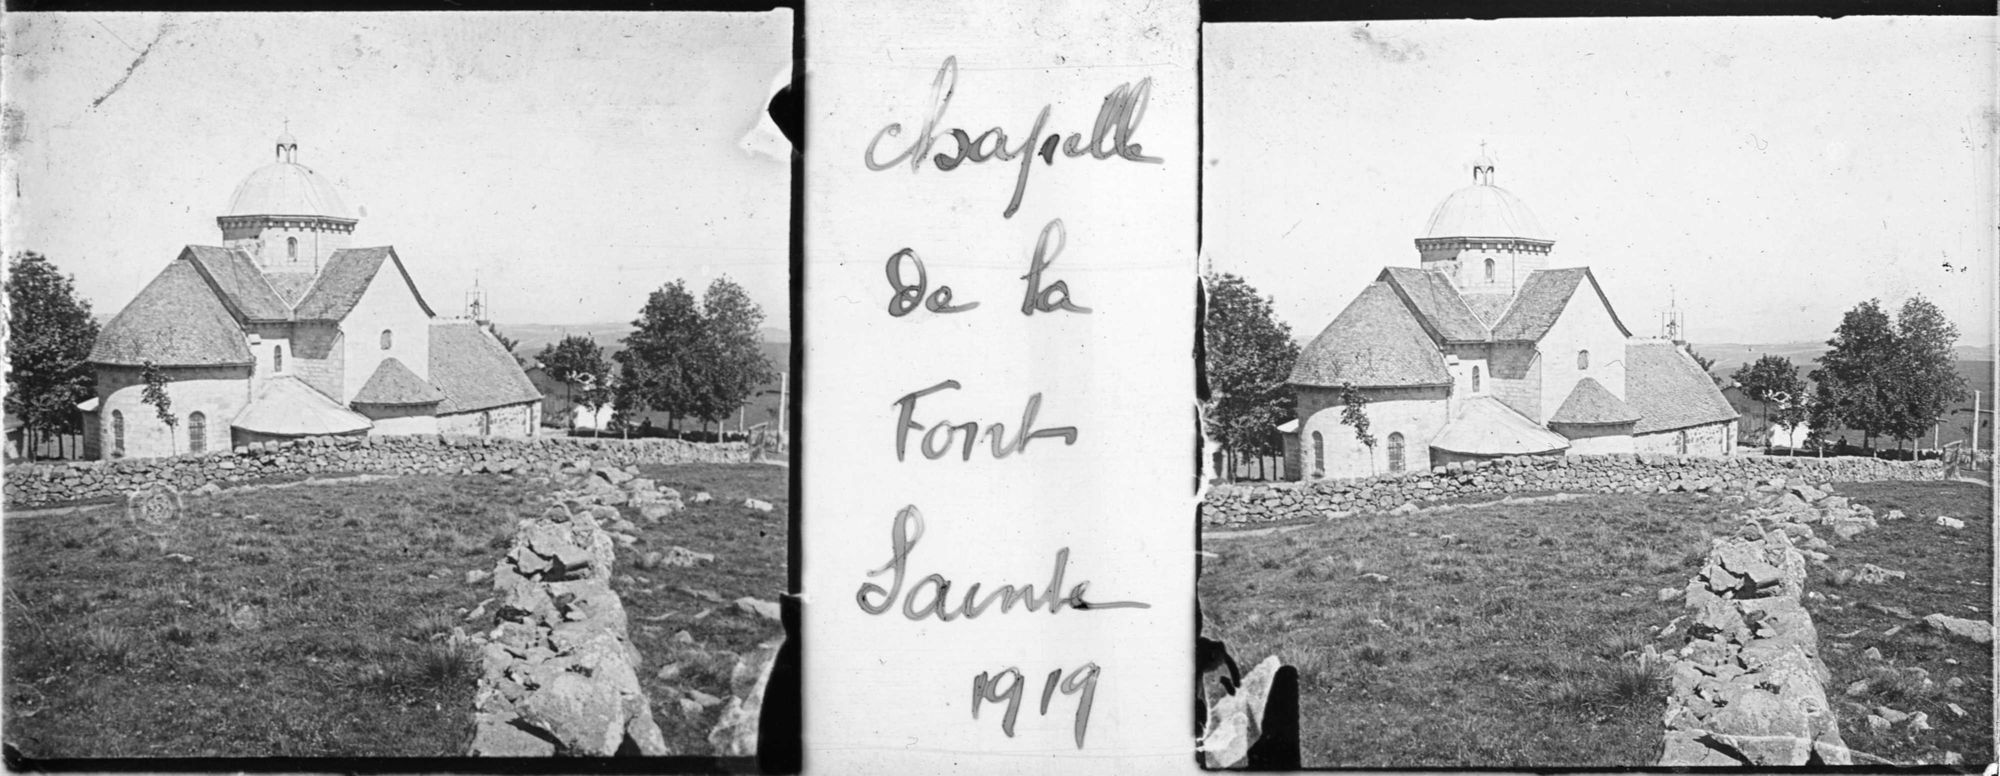 Chapelle
de la
Font
Sainte
1919